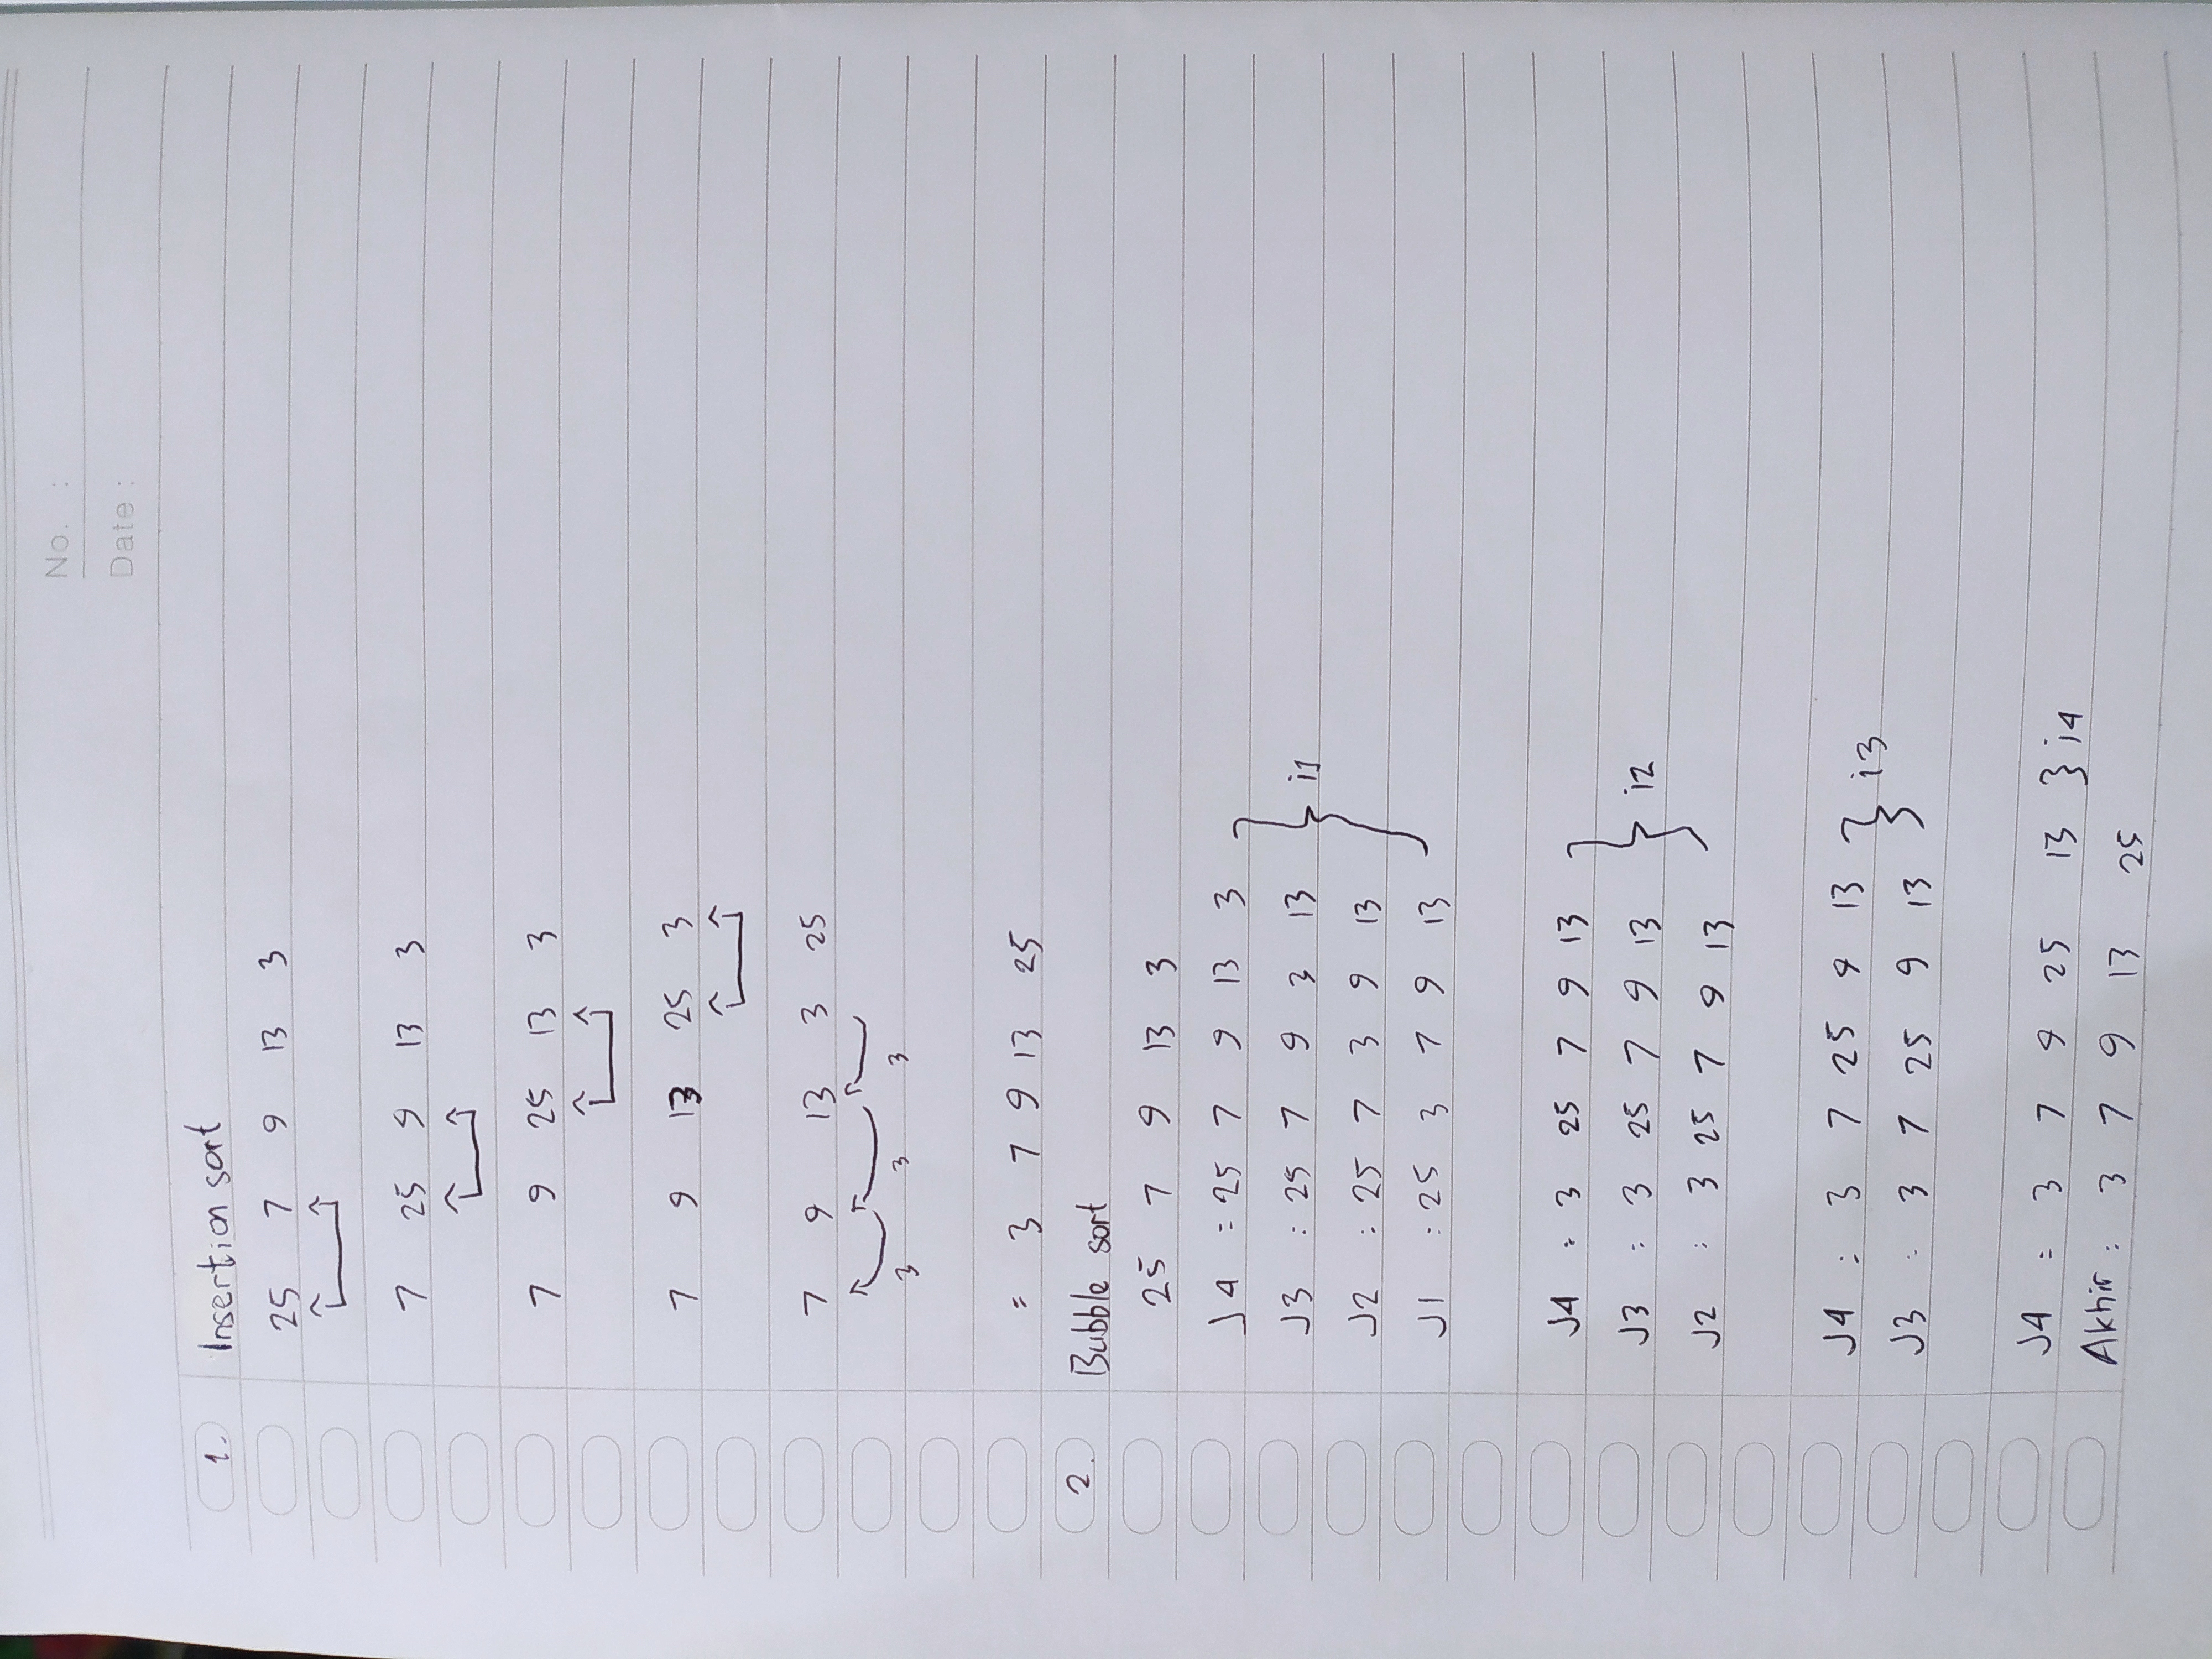 No. :
Date :
1. Insertion sort
25 7 9 13 3
7 25 9 13 3
7 9 25 13 3
7 9 13 25 3
7 9 13 3 25
3 3 3
= 3 7 9 13 25
2. Bubble sort
25 7 9 13 3
J4 = 25 7 9 13 3
J3 : 25 7 9 3 13
J2 : 25 7 3 9 13
J1 : 25 3 7 9 13
i1
J4 : 3 25 7 9 13
J3 : 3 25 7 9 13
J2 : 3 25 7 9 13
i2
J4 : 3 7 25 9 13
J3 : 3 7 25 9 13
i3
J4 = 3 7 9 25 13 } i4
Akhir : 3 7 9 13 25